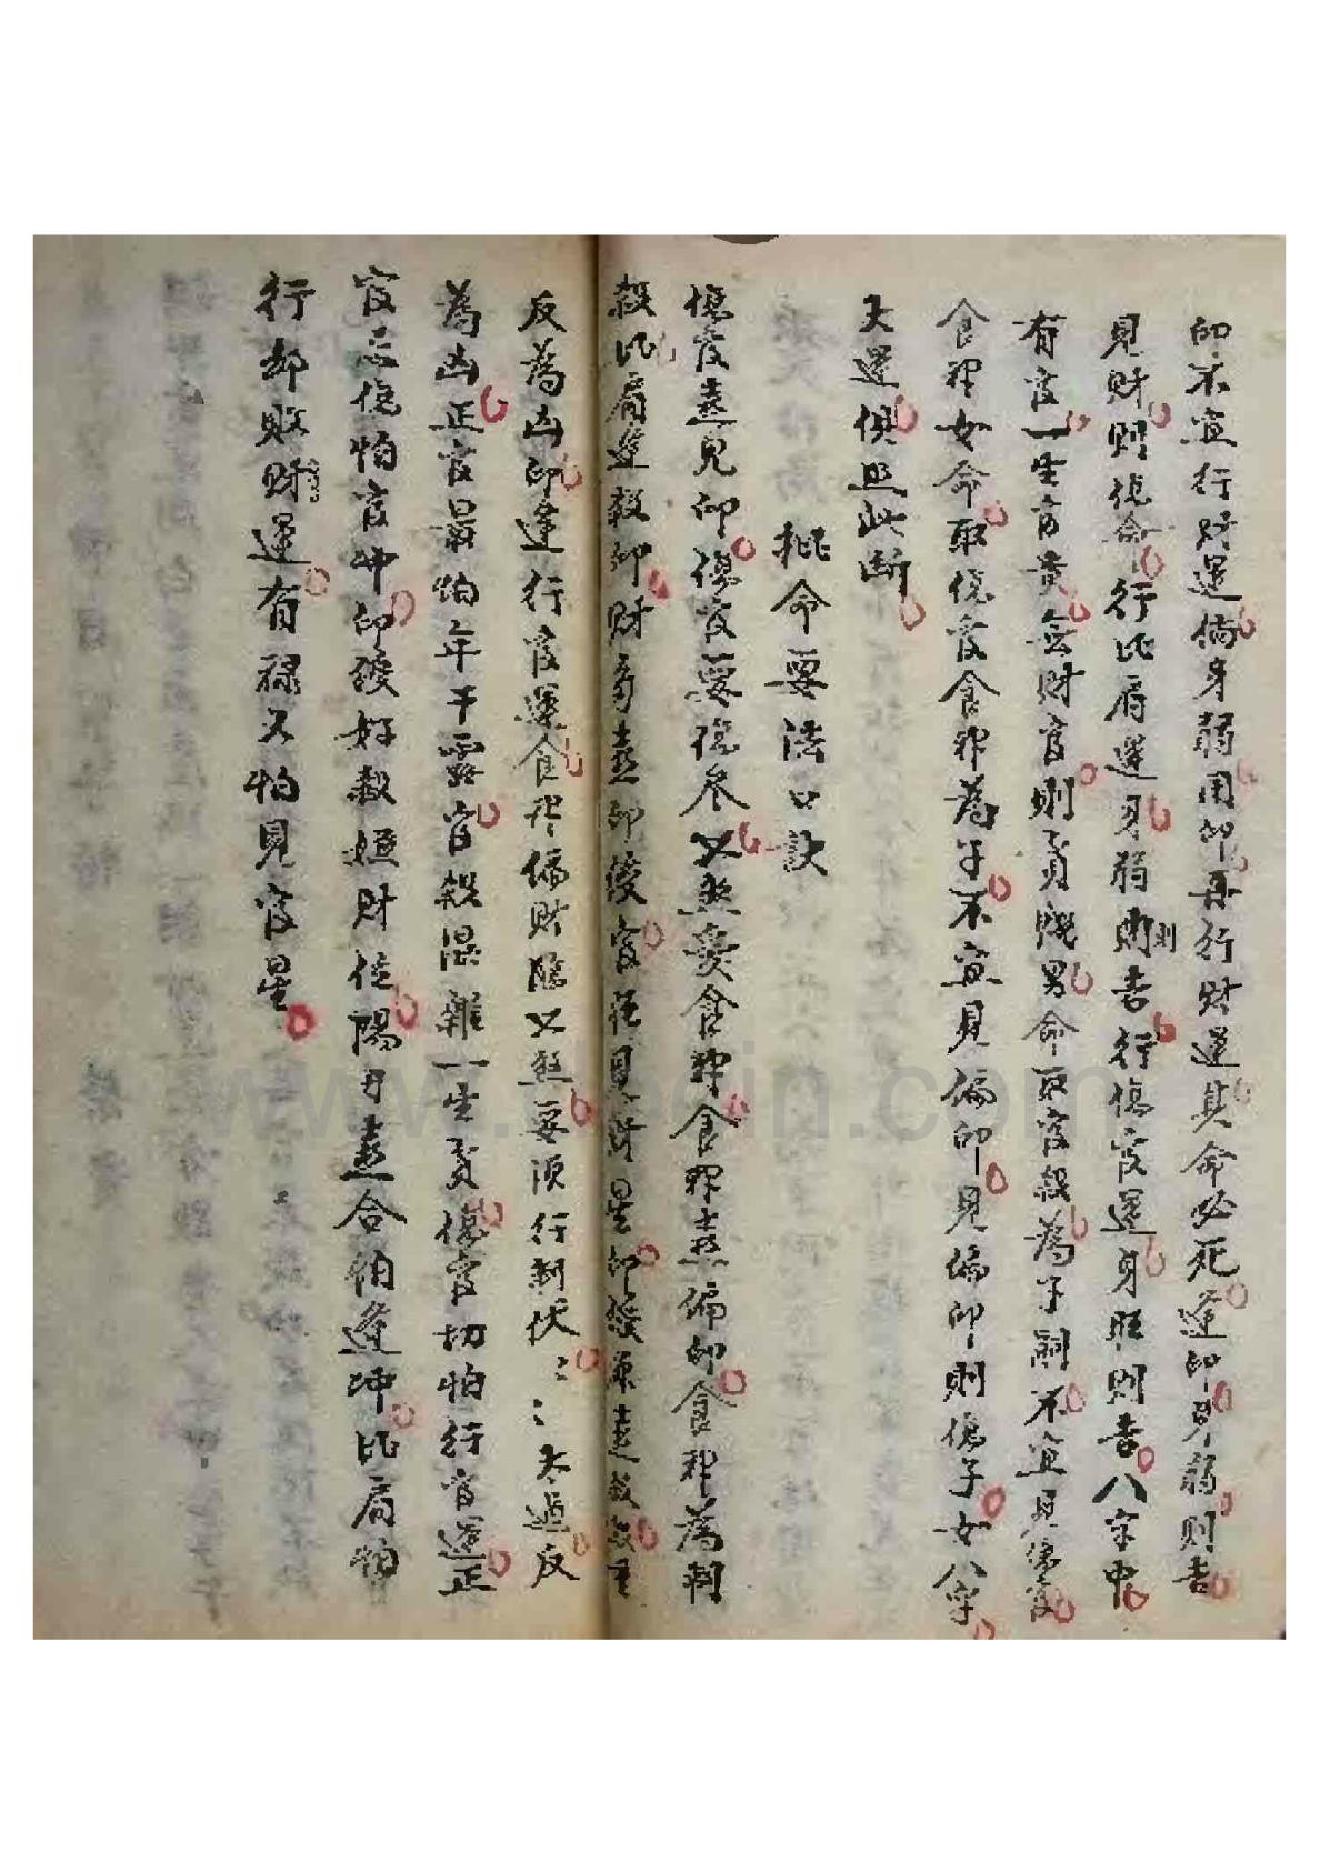 印不宜行財運倘身弱用印再行財運其命必死逢印身弱則吉
見財則傷命行比肩運身弱則吉行傷官運身旺則吉八字中
則
有官一生富貴無財官則貧賤男命取官殺為子嗣不宜見傷官
食神女命取傷官食神為子不宜見偏印見偏印則傷子女八字
大運俱照此斷
批命要法口訣
傷官喜見印傷官要傷尽又無妻食神食神喜偏印食神為制
殺比肩逢殺印財多喜印綬官旺見財星印綬原喜殺殺重
反為凶印逢行官運食神偏財勝又無要須行制伏〻〻太過反
為凶正官最怕年干露官殺混雜一生貧傷官切怕行官運正
官忌傷怕官冲印綬好殺嫌財位陽刃喜合怕逢冲比肩怕
行却敗財運有祿又怕見官星
www.
in.com